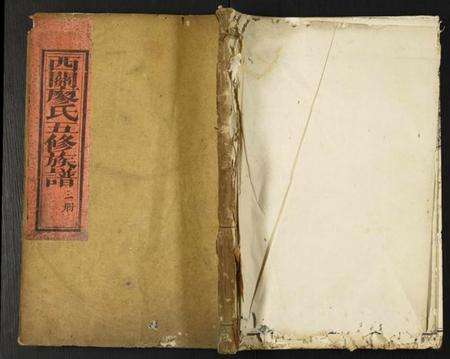 西關廖氏五修族譜
二册